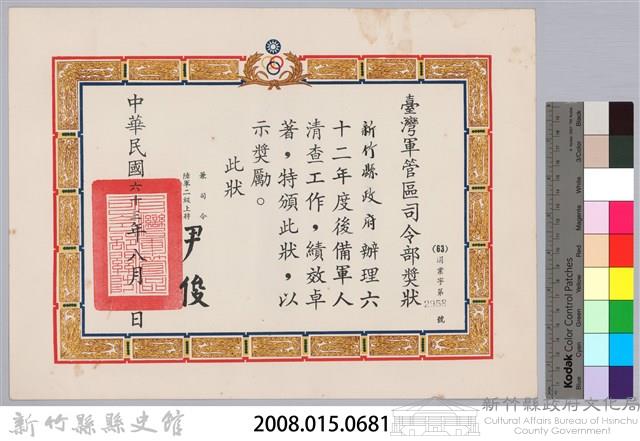 臺灣軍管區司令部獎狀
(63)
業字第
2958
號
新竹縣政府辦理六
十二年度後備軍人
清查工作,績效卓
著,特頒此狀,以
示獎勵。
此狀
兼司令
陸軍二級上將
尹俊
中華民國六十三年八月 日
Kodak Color Control Patches
Blue
Cyan
Green
Yellow
Red
Magenta
White
3/Color
Black
新竹縣縣史館
2008.015.0681
新竹縣政府文化局
Cultural Affairs Bureau of Hsinchu
County Government